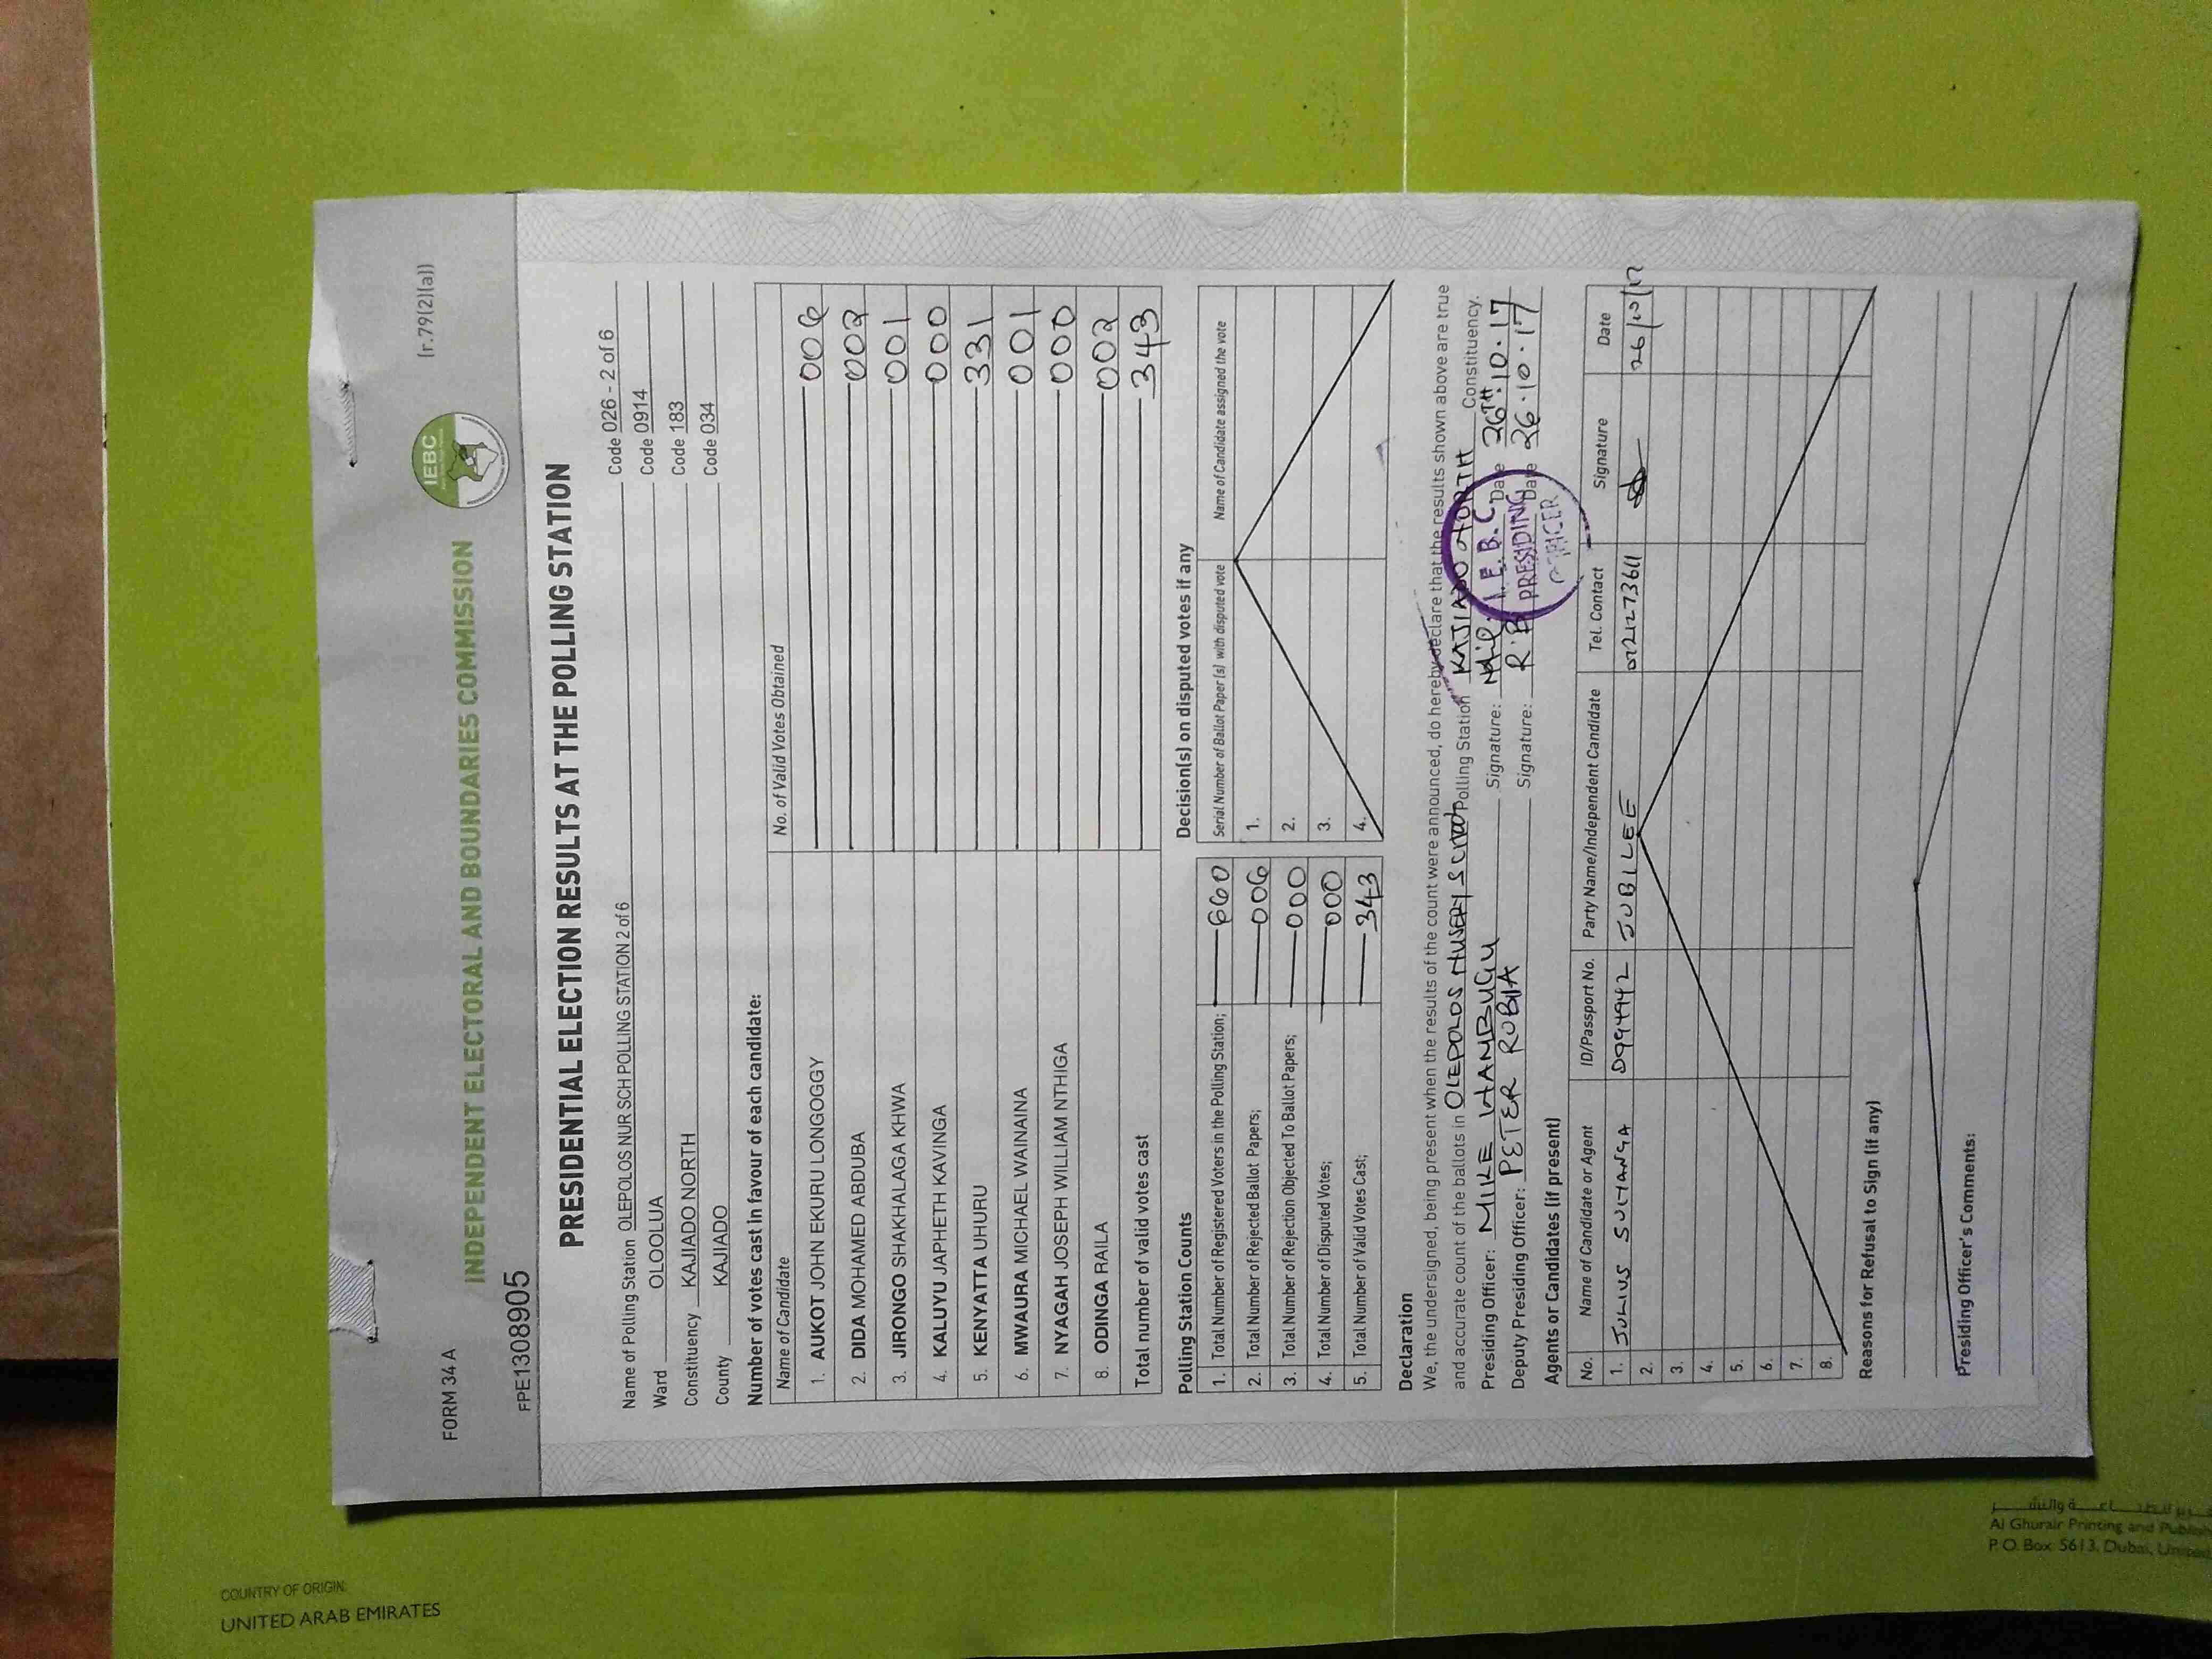 FORM 34 A
(r.79(2)(a))
IEBC
INDEPENDENT ELECTORAL AND BOUNDARIES COMMISSION
FPE13089905
PRESIDENTIAL ELECTION RESULTS AT THE POLLING STATION
Name of Polling Station OLEPOLOS NUR SCH POLLING STATION 2 of 6 Code 026 - 2 of 6
Ward OLOOLUA Code 0914
Constituency KAJIADO NORTH Code 183
County KAJIADO Code 034
Number of votes cast in favour of each candidate:
Name of Candidate No. of Valid Votes Obtained
1. AUKOT JOHN EKURU LONGOGGY 006
2. DIDA MOHAMED ABDUBA 002
3. JIRONGO SHAKHALAGA KHWA 001
4. KALUYU JAPHETH KAVINGA 000
5. KENYATTA UHURU 331
6. MWAURA MICHAEL WAINAINA 001
7. NYAGAH JOSEPH WILLIAM NTHIGA 000
8. ODINGA RAILA 002
Total number of valid votes cast 343
Polling Station Counts
1. Total Number of Registered Voters in the Polling Station; 660
2. Total Number of Rejected Ballot Papers; 006
3. Total Number of Rejection Objected To Ballot Papers; 000
4. Total Number of Disputed Votes; 000
5. Total Number of Valid Votes Cast; 343
Decision(s) on disputed votes if any
Serial Number of Ballot Paper (s) with disputed vote Name of Candidate assigned the vote
1.
2.
3.
4.
Declaration
We, the undersigned, being present when the results of the count were announced, do hereby declare that the results shown above are true
and accurate count of the ballots in OLEPOLOS Polling Station KAJIADO NORTH Constituency.
Presiding Officer: MIKE Signature: Date 26TH.10.17
Deputy Presiding Officer: PETER ROBIA Signature: Date 26.10.17
I.E.B.C.
PRESIDING
OFFICER
Agents or Candidates (if present)
No. Name of Candidate or Agent ID/Passport No. Party Name/Independent Candidate Tel. Contact Signature Date
1. JULIUS JUBILEE 26/10/17
2.
3.
4.
5.
6.
7.
8.
Reasons for Refusal to Sign (if any)
Presiding Officer's Comments:
COUNTRY OF ORIGIN:
UNITED ARAB EMIRATES
Al Ghurair Printing and
P. O. Box 5613, Dubai,